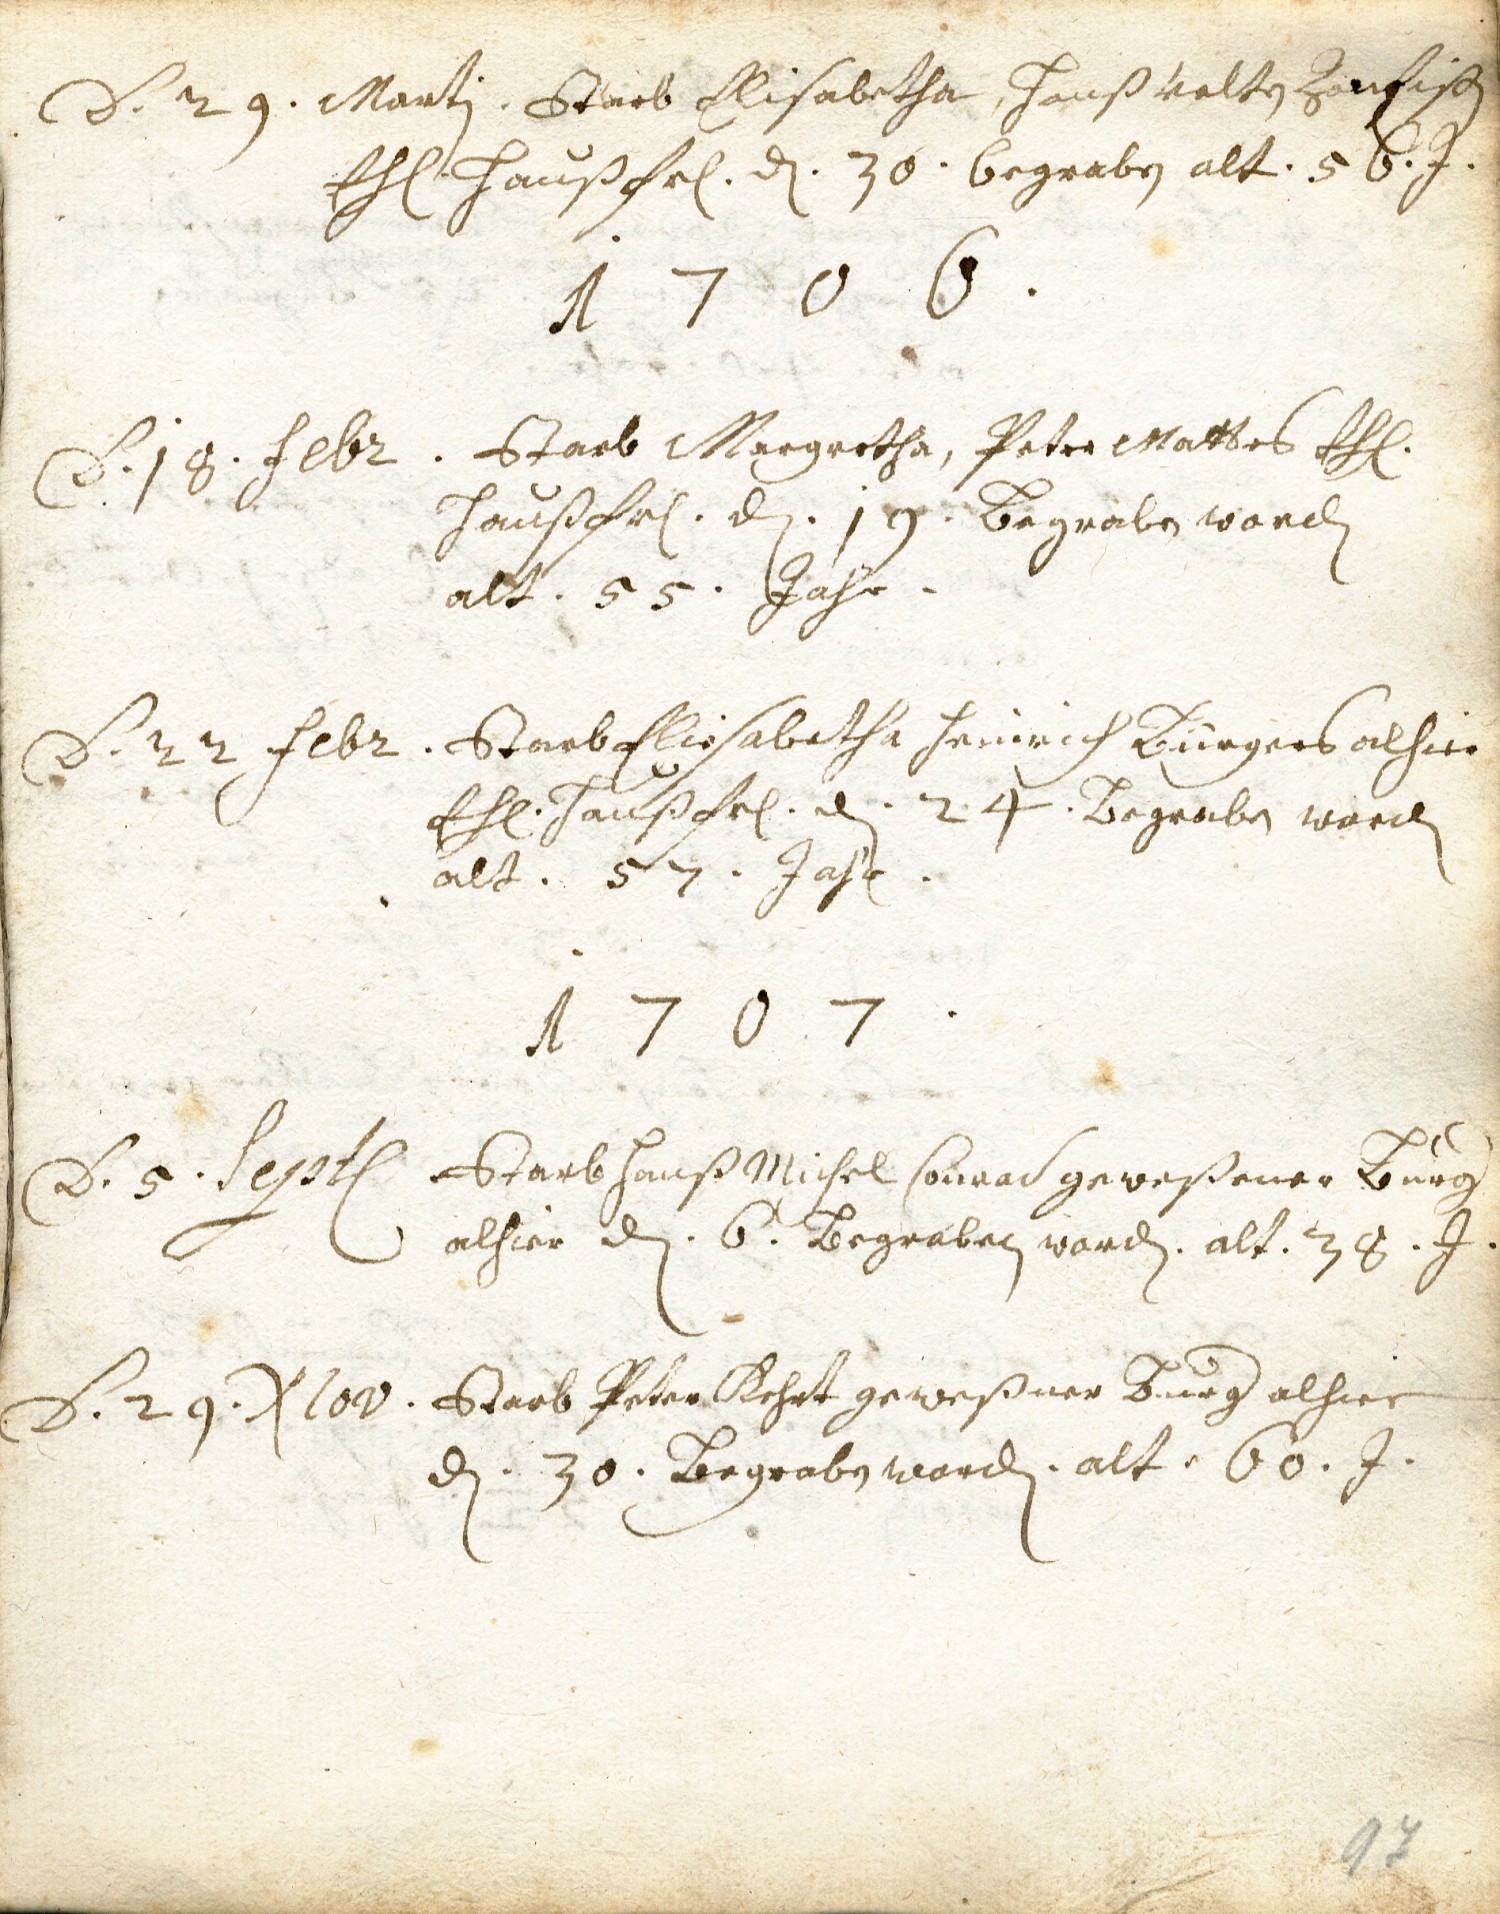 D. 29. Martj. Starb Elisabetha, Hanß Velten
Ehl. Haußfr. den. 30. begraben alt. 56. J.
1706.
D. 18. Febr. Starb Margretha, Peter Mattes Ehl.
Haußfr. den. 19. Begraben worden
alt. 55. Jahr.
D. 22 Febr. Starb Eliesabetha Heinrich Bürgers alhier
Ehl. Haußfr. den. 24. Begraben worden
alt. 57. Jahr.
1707.
D. 5. Sept. Starb Hanß Michel Conrad geweßener Burger
alhier den. 6. Begraben worden. alt. 38. J.
D. 29. Nov. Starb Peter Kehrt geweßner Burger alhier
den. 30. Begraben worden. alt. 60. J.
97